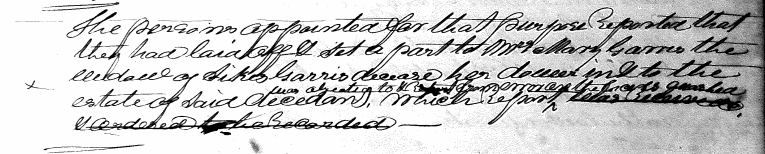 The persons appointed for that purpose reported that
they had laid off & set a part to Mrs Mary Garris the
widow of Sikes Garris decease her dower in & to the
estate of said decedan, which report was received
& ordered to be recorded